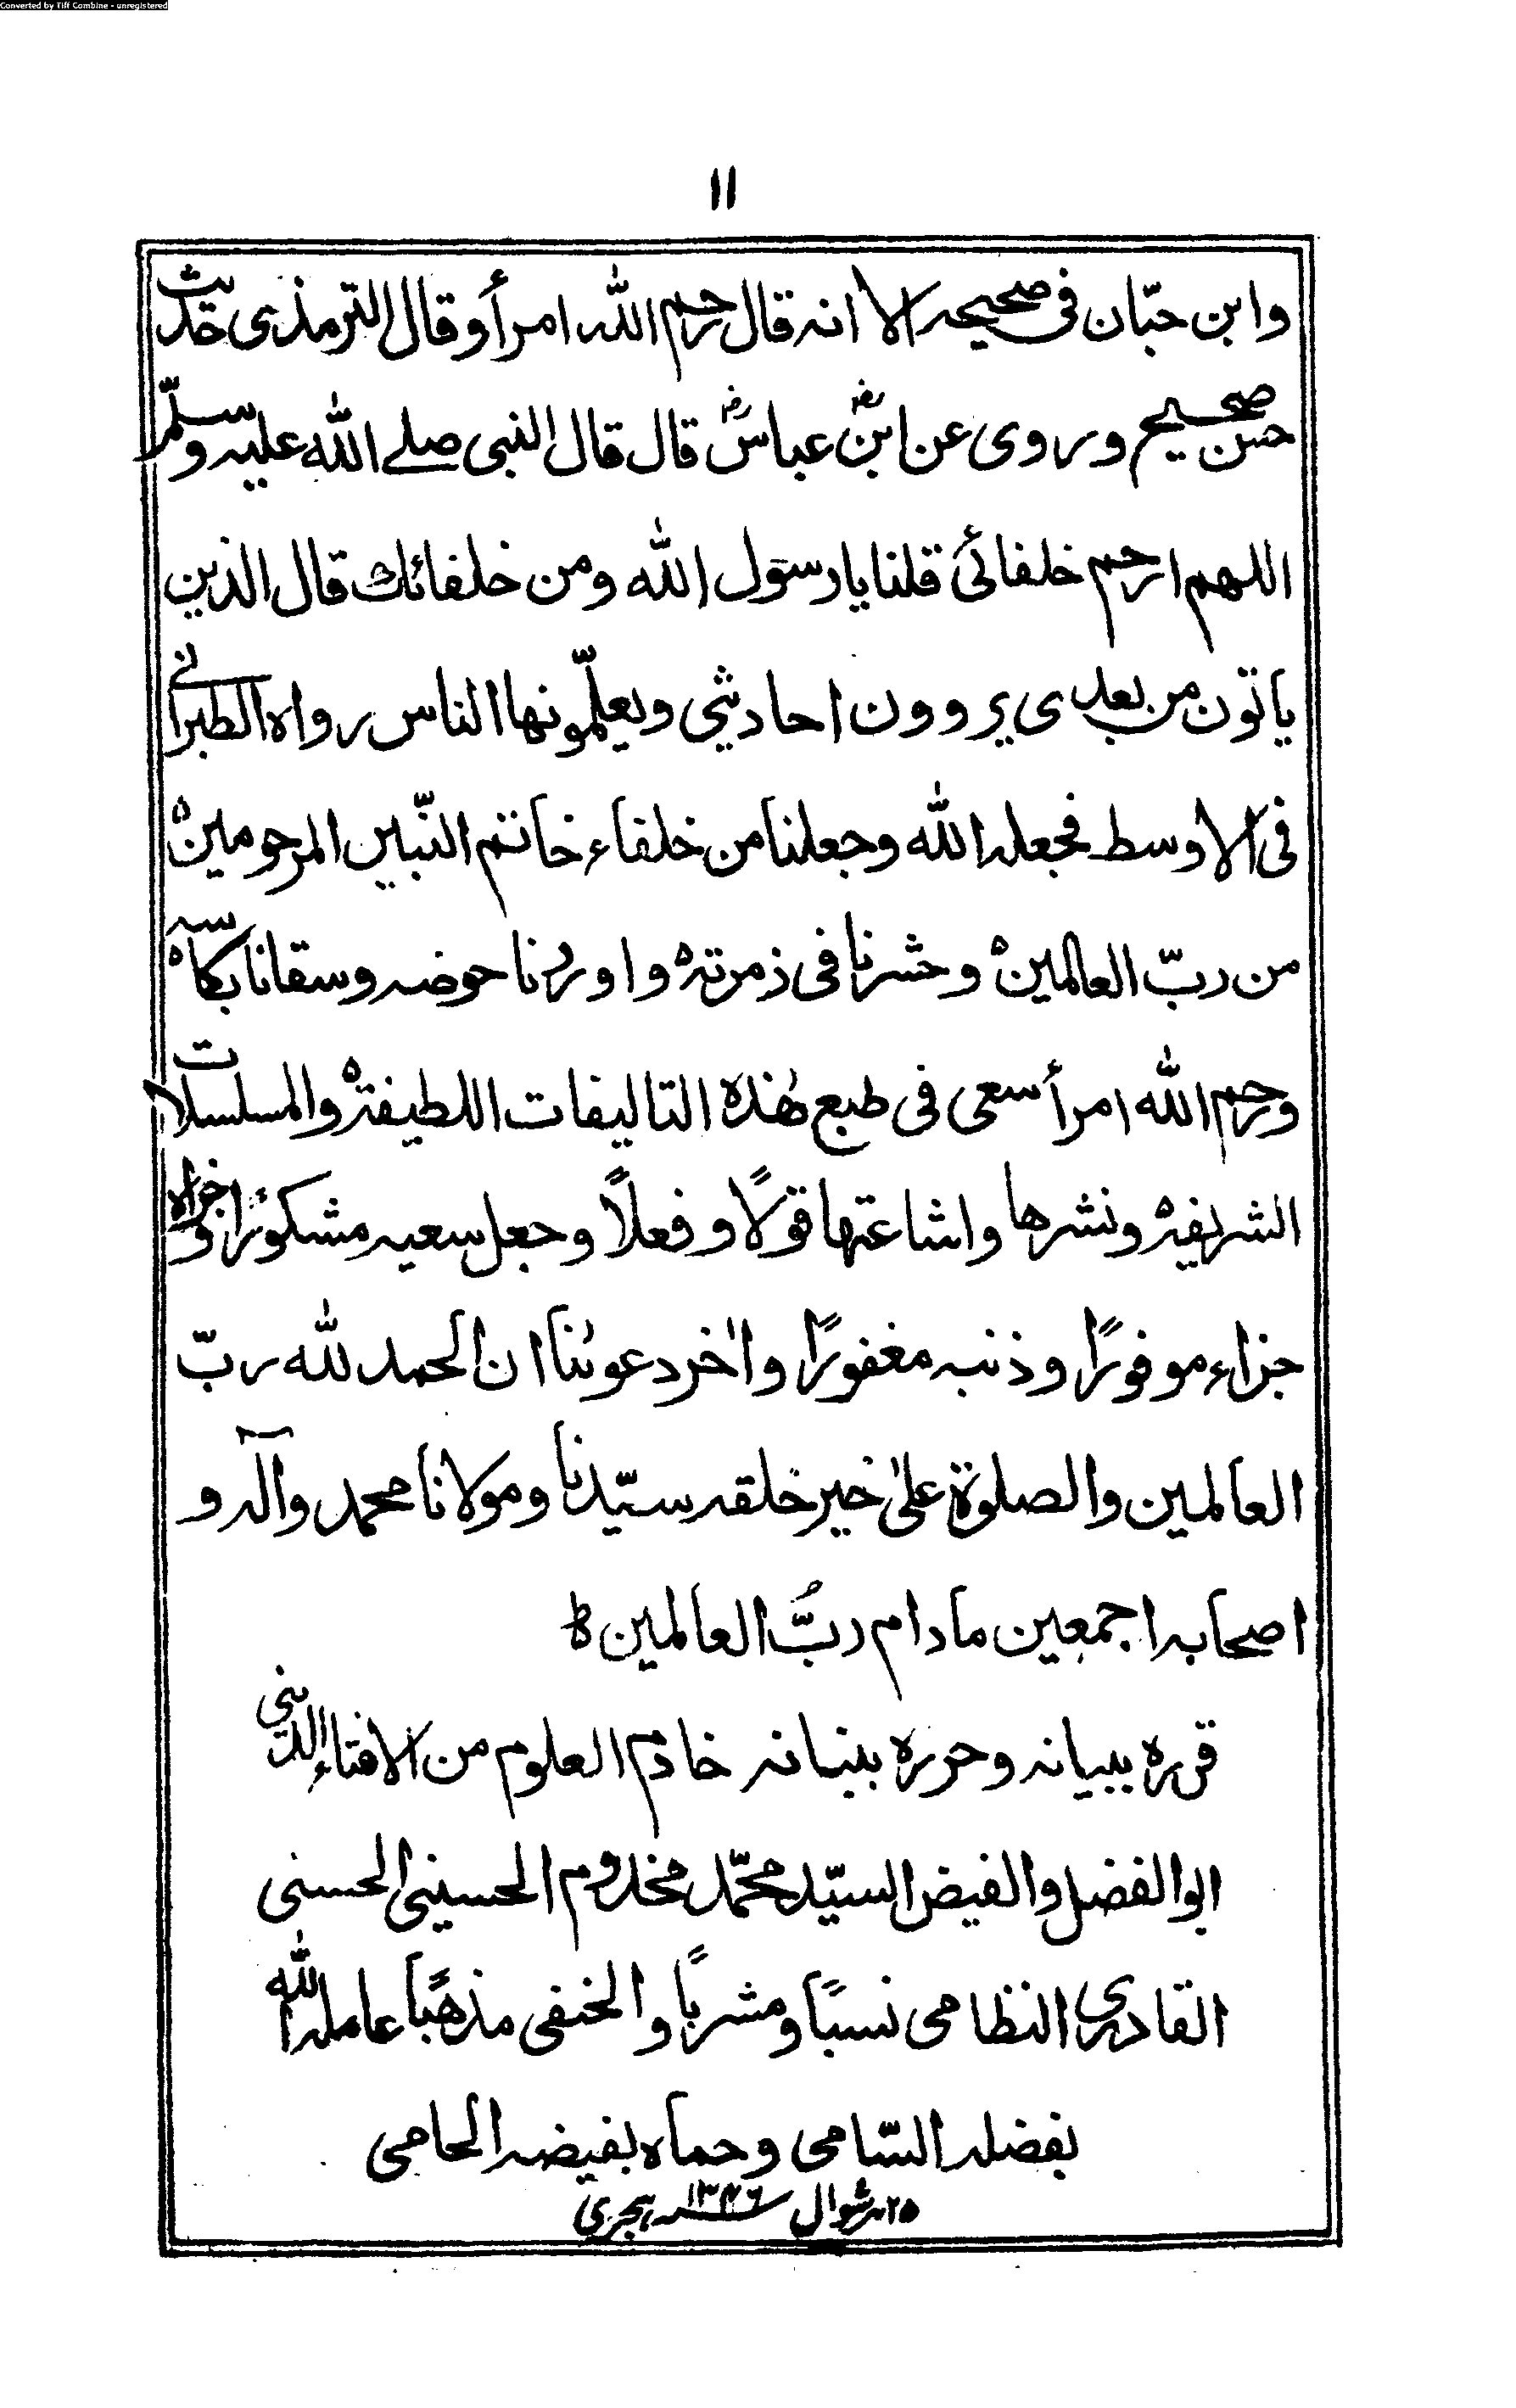 Converted by Tiff Combine - unregistered
١١
وابن حبّان فی صحیحہ الا انہ قال رحم اللّٰہ امرأ وقال الترمذی حدیث
حسن صحیح وروی عن ابنؓ عباسؓ قال قال النبی صلے اللّٰہ علیہ وسلّم
اللہم ارحم خلفائی قلنا یا رسول اللّٰہ ومن خلفائك قال الذین
یاتون من بعدی یروون احادیثی ویعلّمونھا الناس رواہ الطبرانے
فی الاوسط فجعلہ اللّٰہ وجعلنا من خلفاء خاتم النّبیین المرحومین ہ
من ربّ العالمین ہ وحشرنا فی ذمرتہ ہ واوردنا حوضہ وسقانا بکاسہ ہ
ورحم اللّٰہ امرأ سعی فی طبع ھٰذہ التالیفات اللطیفۃ والمسلسلات
الشریفۃ ونشرھا واشاعتھا قولًا وفعلًا وجعل سعیہ مشکورًا وجزاہ
جزاء موفورًا وذنبہ مغفورًا واٰخر دعوٰنا ان الحمد للّٰہ ربّ
العالمین والصلوۃ علیٰ خیر خلقہ سیّدنا ومولانا محمد واٰلہ و
اصحابہ اجمعین مادام ربُّ العالمین ط
قررہ ببیانہ وحررہ ببنانہ خادم العلوم من الافتاء الدینی
ابوالفضل والفیض السیّد محمّد مخدوم الحسینی الحسنی
القادری النظامی نسبًا ومشربًا والحنفی مذھبًا عاملہ اللّٰہ
بفضلہ السّامی وحماہ بفیضہ الحامی
۲۵ شوال ۱۳۴۶ ہجری